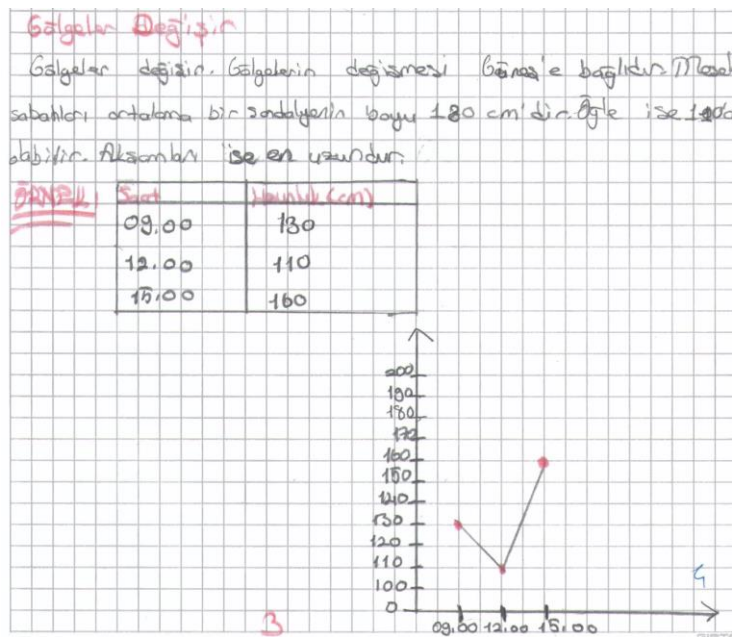 Gölgeler Değişir
Gölgeler değişir. Gölgelerin değişmesi Güneş'e bağlıdır. Mesel
sabahları ortalama bir sandalyenin boyu 180 cm'dir. Öğle ise
olabilir. Akşamları ise en uzundur.
ÖRNEK:
Saat Uzunluk (cm)
09.00 130
12.00 110
15.00 160
200
190
180
170
160
150
140
130
120
110
100
0
09.00 12.00 15.00
3